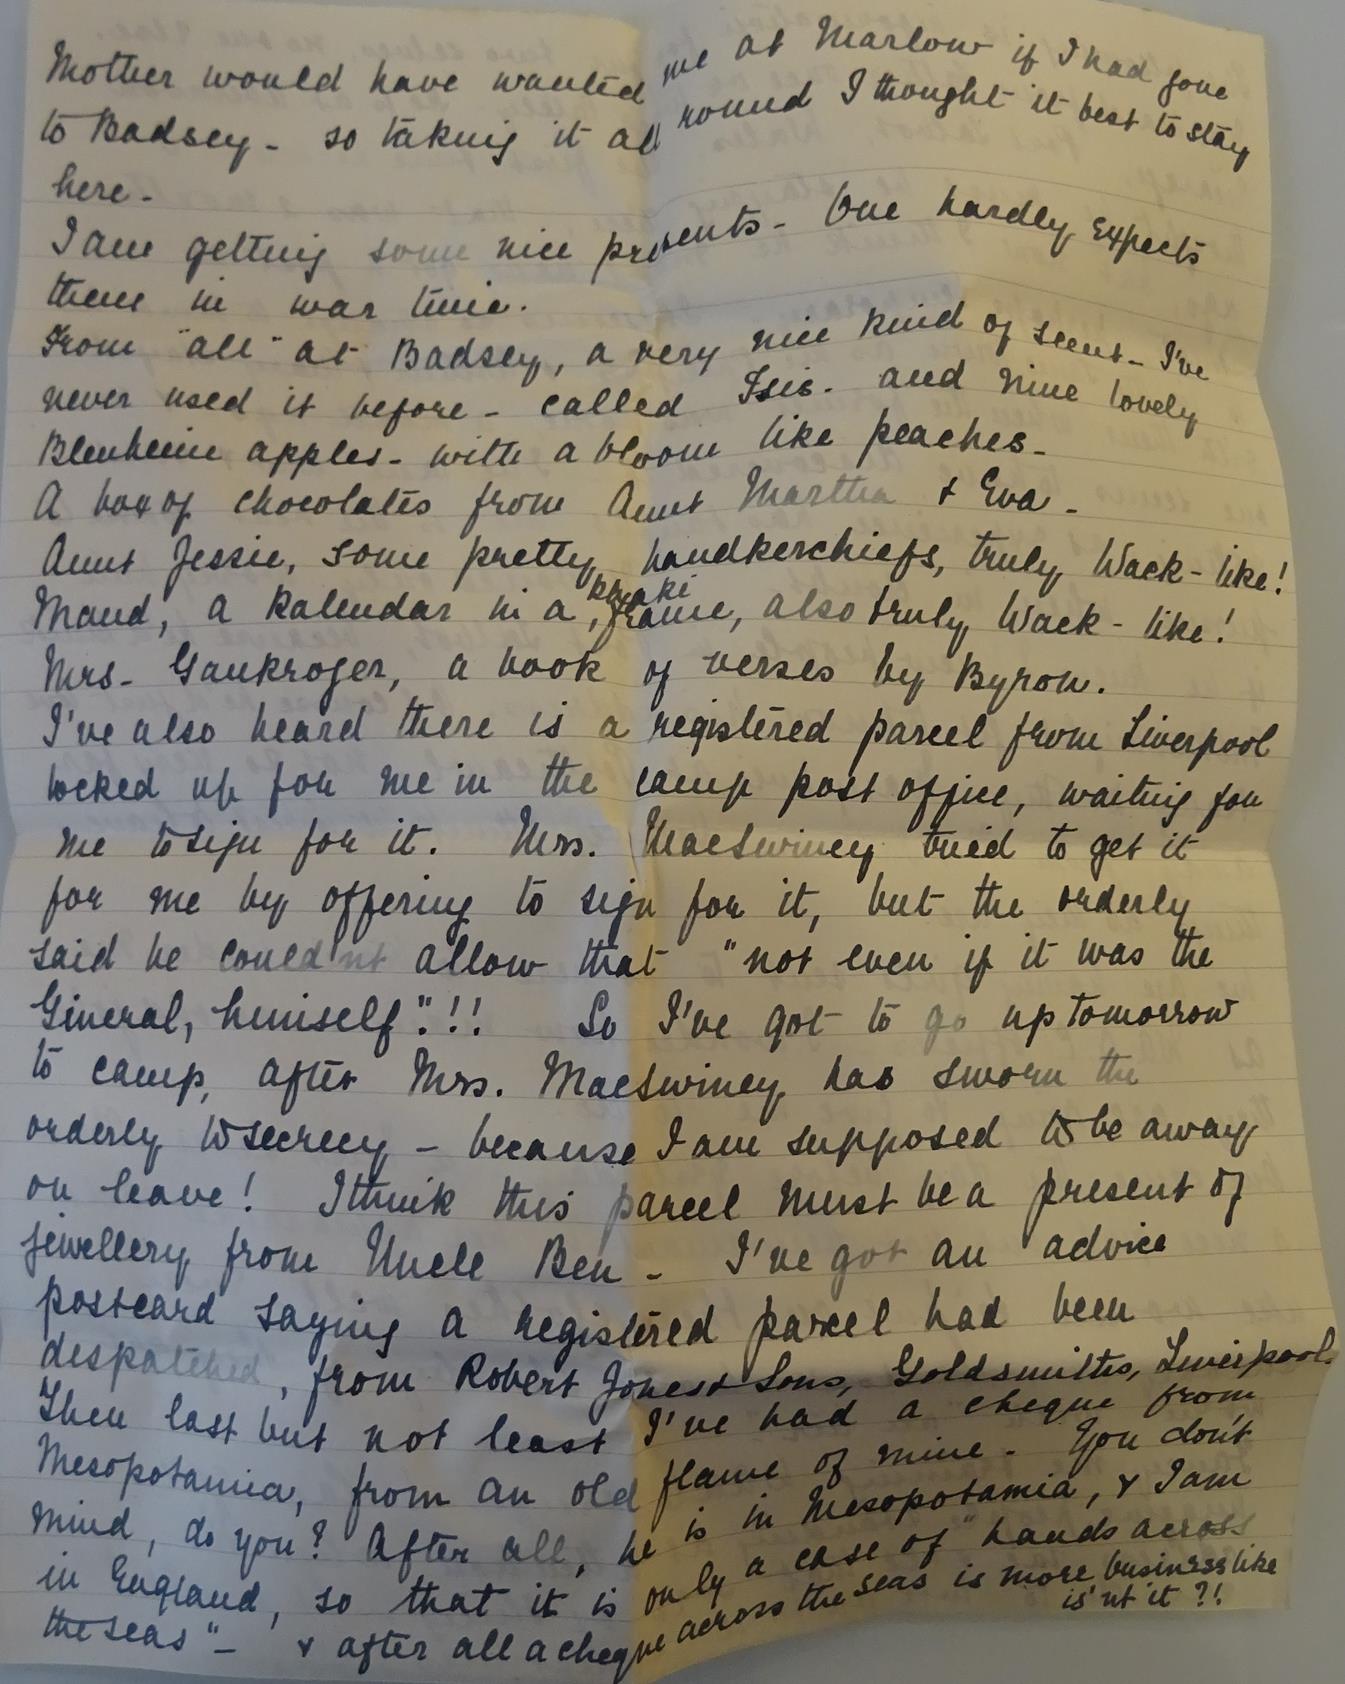 Mother would have wanted me at Marlow if I had gone
to Badsey - so taking it all round I thought it best to stay
here -
I am getting some nice presents - One hardly expects
them in war time.
From "all" at Badsey, a very nice kind of scent - I've
never used it before - called Isis - and nine lovely
Blenheim apples - with a bloom like peaches -
A box of chocolates from Aunt Martha & Eva -
Aunt Jessie, some pretty handkerchiefs, truly Wack-like!
Maud, a kalendar in a khaki frame, also truly Wack-like!
Mrs. Gaukroger, a book of verses by Byron.
I've also heard there is a registered parcel from Liverpool
locked up for me in the camp post office, waiting for
me to sign for it. Mrs. MacSwiney tried to get it
for me by offering to sign for it, but the orderly
said he could'nt allow that "not even if it was the
Gineral, himself"!!! So I've got to go up tomorrow
to camp, after Mrs. MacSwiney has sworn the
orderly to secrecy - because I am supposed to be away
on leave! I think this parcel must be a present of
jewellery from Uncle Ben - I've got an advice
postcard saying a registered parcel had been
despatched, from Robert Jones & Sons, Goldsmiths, Liverpool.
Then last but not least I've had a cheque from
Mesopotamia, from an old flame of mine - You don't
mind, do you? After all, he is in Mesopotamia, & I am
in England, so that it is only a case of "hands across
the seas" - & after all a cheque across the seas is more businesslike
is'nt it?!